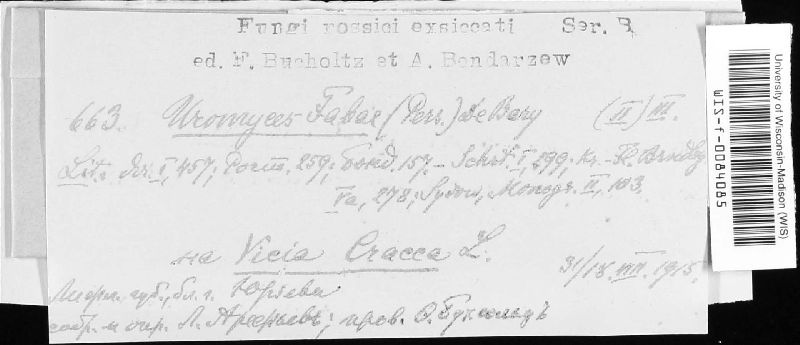 Fungi rossici exsiccati Ser. B
ed. F. Bucholtz et A. Bondarzew
663. Uromyces Fabae (Pers.) de Bary (II) III.
Lit.: I, 457; 259; Бонд. 157. – Schröt. I, 299; Kr.-Fl. Brndbg
Va, 278; Sydow, Monogr. II, 103.
на Vicia Cracca L.
31/18. VIII. 1915.
Лифл. губ., бл. г. Юрьева
собр. и опр. Л. пров. Ѳ. Бухгольцъ
University of Wisconsin-Madison (WIS)
WIS-f-0084085